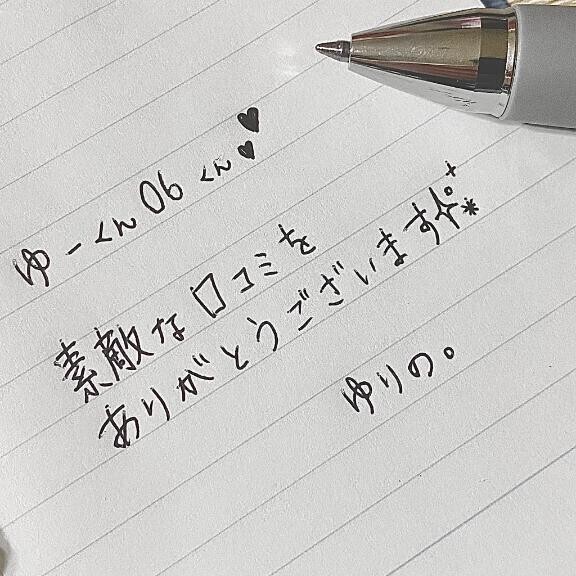 ゆーくん06くん♥♥
素敵な口コミを
ありがとうございます✧˖°*
ゆりの。